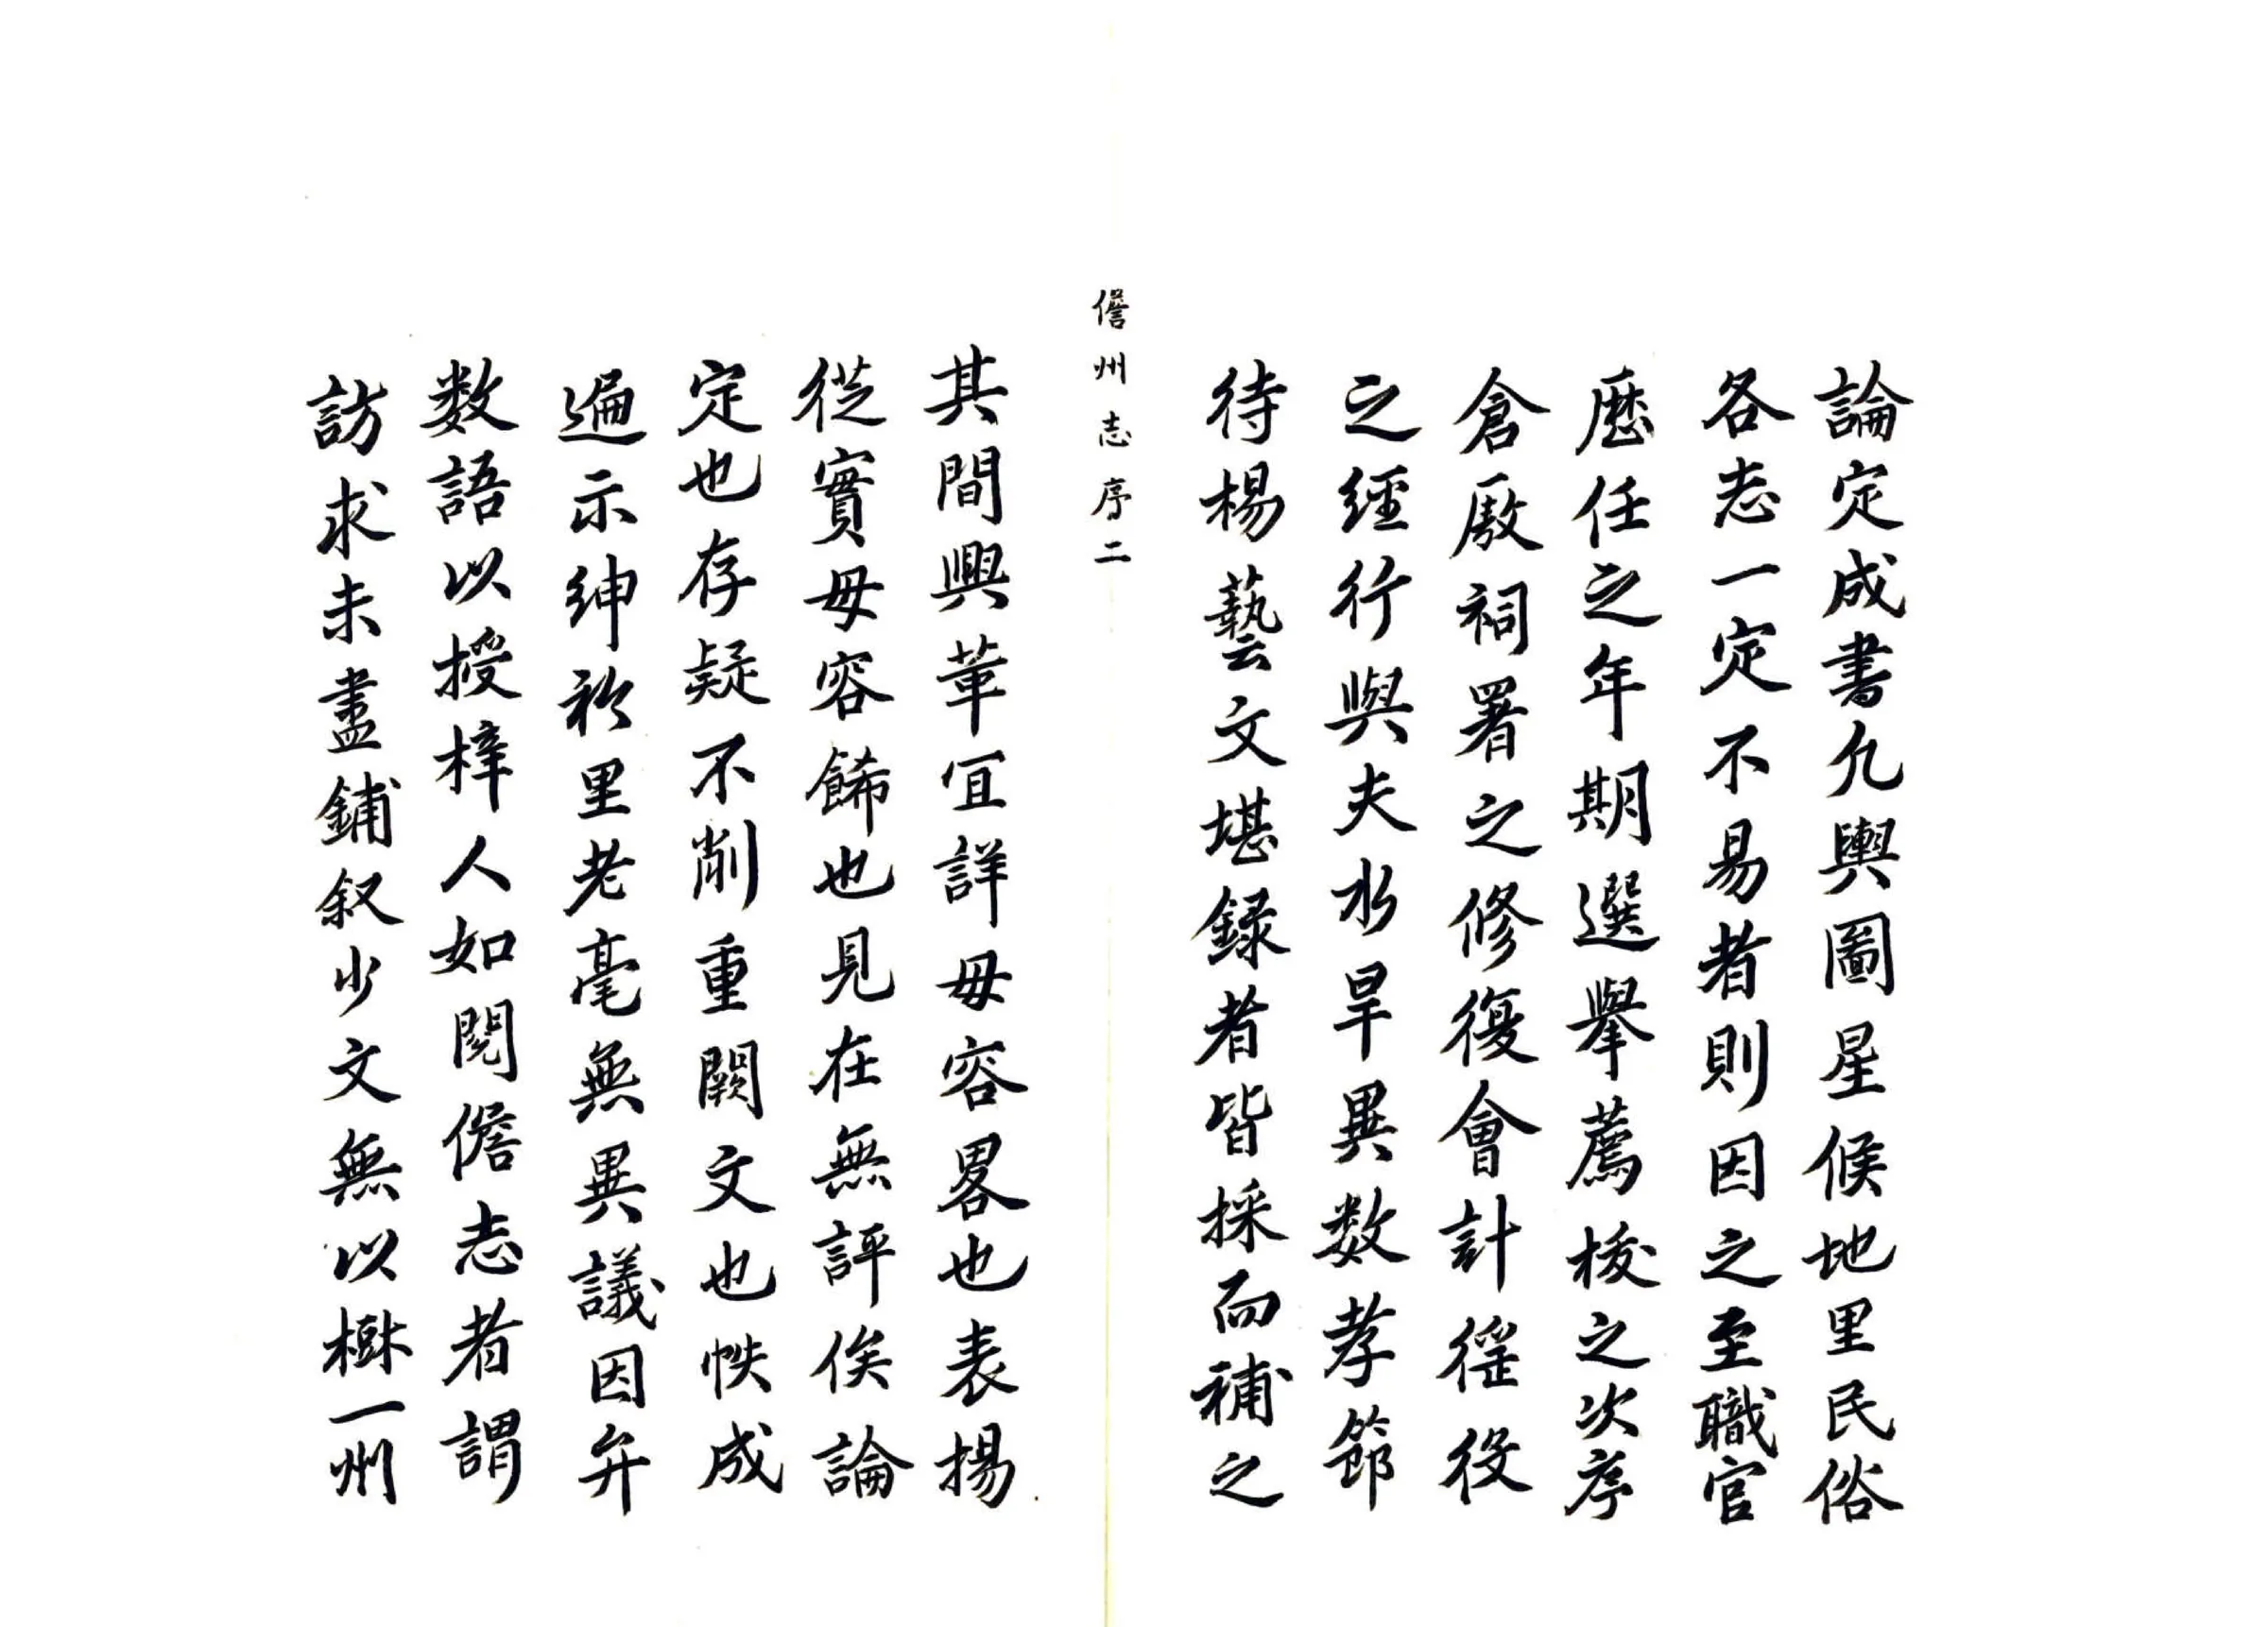 論定成書凢輿圖星候地里民俗
各志一定不易者則因之至職官
歷任之年期選舉薦授之次序
倉廒祠署之修復會計徭役
之經行與夫水旱異数孝節
待楊藝文堪録者皆採而補之
儋州志序二
其間興革冝詳毋容畧也表揚
從實毋容餙也見在無評俟論
定也存疑不削重闕文也帙成
遍示紳衿里老毫無異議因弁
数語以授梓人如閱儋志者謂
訪求未盡鋪叙少文無以樹一州